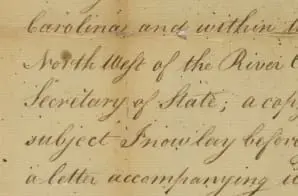 Carolina, and within t
North West of the River O
Secretary of State; a cop
subject I now lay before
a letter accompanying i